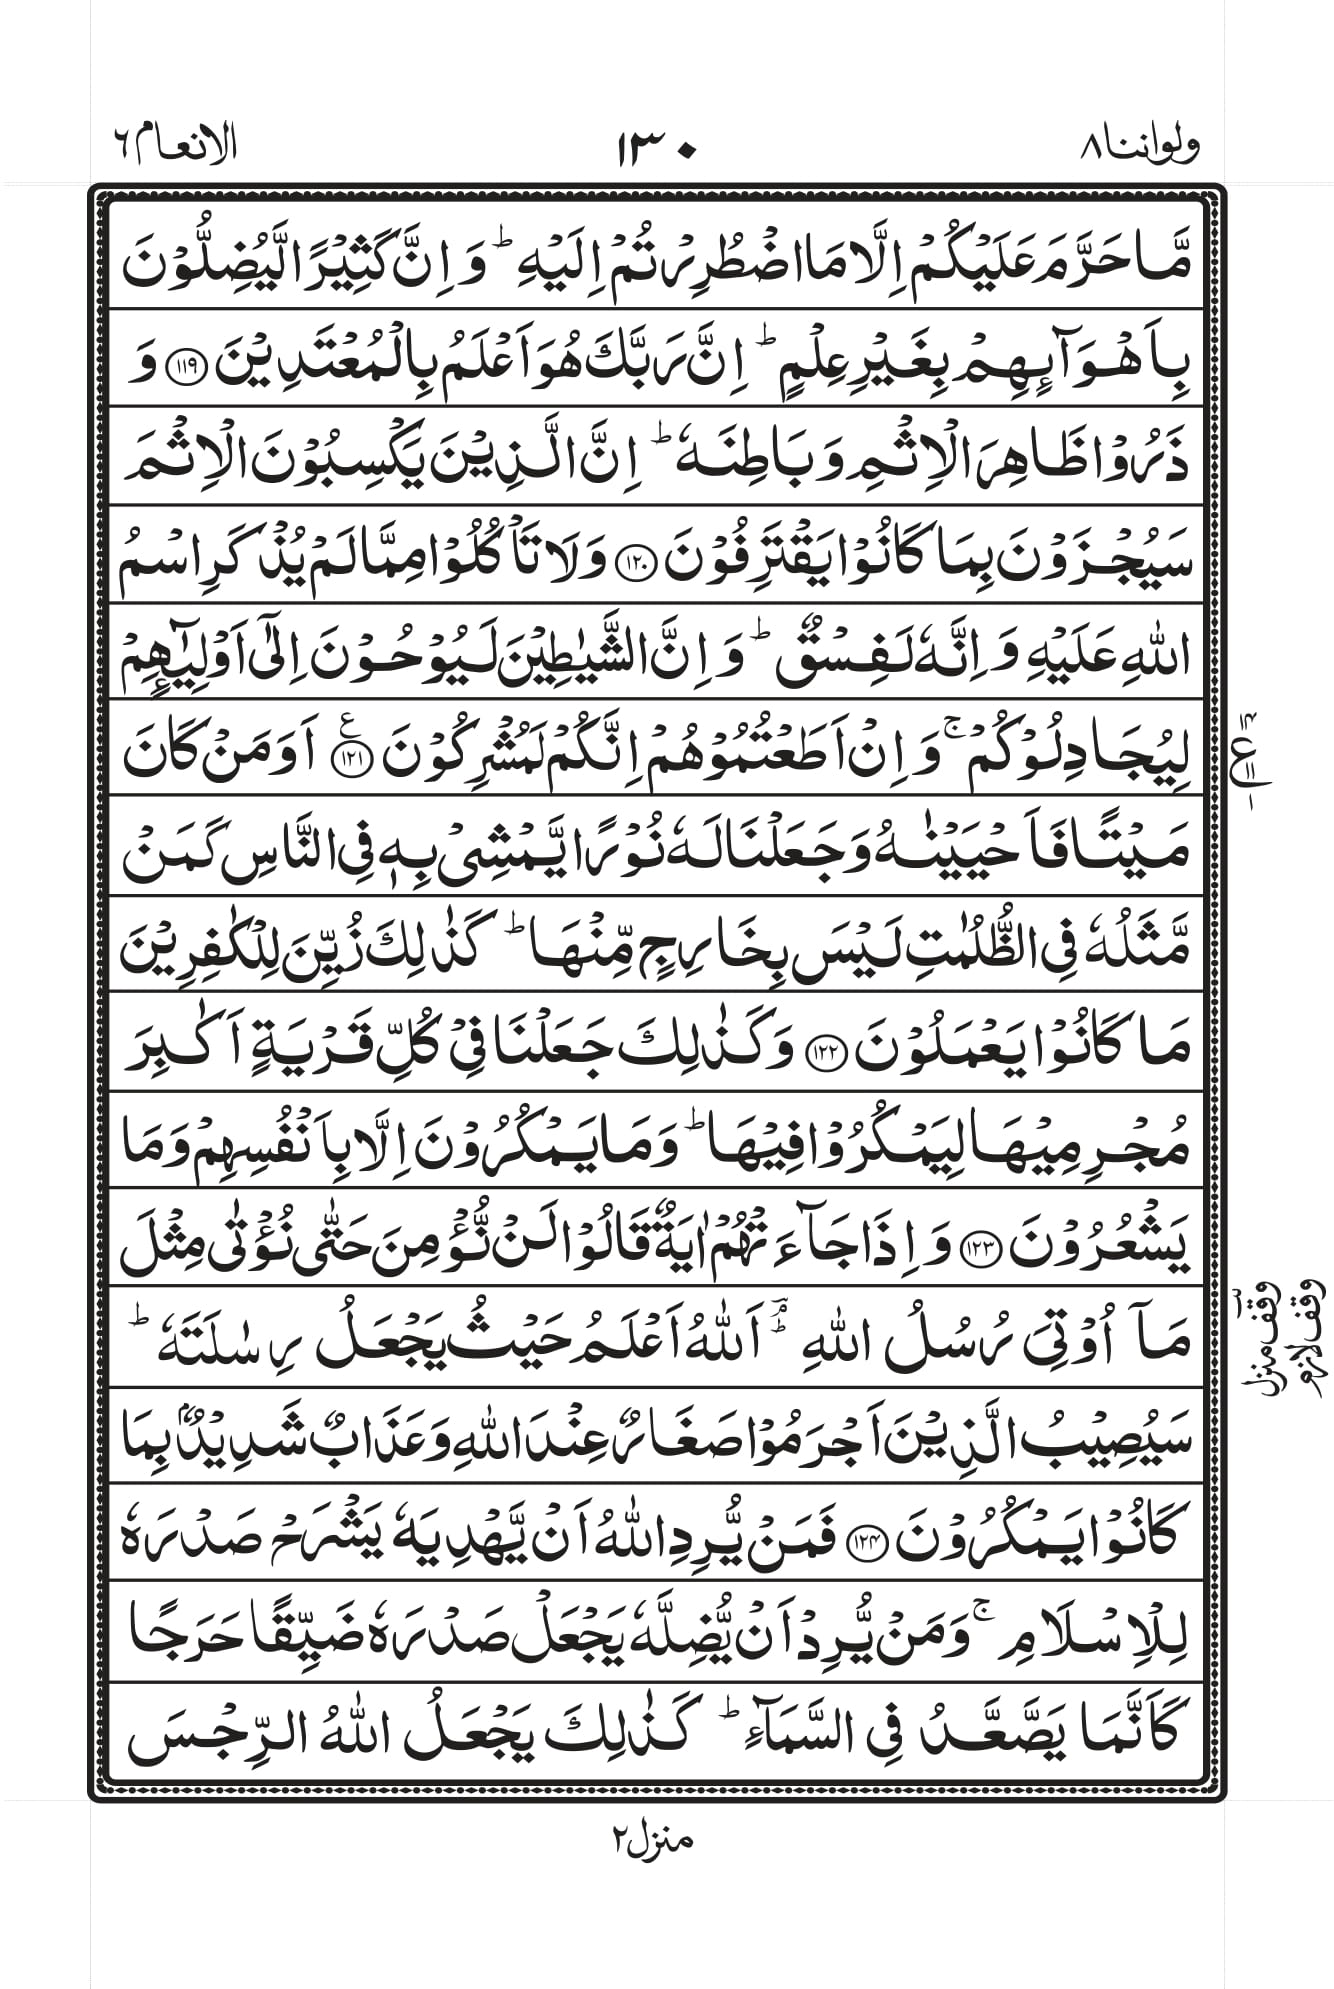 ولواننا ٨
١٣٠
الانعام ٦
مَّا حَرَّمَ عَلَيۡكُمۡ اِلَّا مَا اضۡطُرِرۡتُمۡ اِلَيۡهِ ؕ وَ اِنَّ كَثِيۡرًا لَّيُضِلُّوۡنَ
بِاَهۡوَآٮِٕهِمۡ بِغَيۡرِ عِلۡمٍ ؕ اِنَّ رَبَّكَ هُوَ اَعۡلَمُ بِالۡمُعۡتَدِيۡنَ ﴿۱۱۹﴾ وَ
ذَرُوۡا ظَاهِرَ الۡاِثۡمِ وَ بَاطِنَهٗ ؕ اِنَّ الَّذِيۡنَ يَكۡسِبُوۡنَ الۡاِثۡمَ
سَيُجۡزَوۡنَ بِمَا كَانُوۡا يَقۡتَرِفُوۡنَ ﴿۱۲۰﴾ وَلَا تَاۡكُلُوۡا مِمَّا لَمۡ يُذۡكَرِ اسۡمُ
اللّٰهِ عَلَيۡهِ وَ اِنَّهٗ لَفِسۡقٌ ؕ وَ اِنَّ الشَّيٰطِيۡنَ لَيُوۡحُوۡنَ اِلٰٓى اَوۡلِيٰٓـٕـهِمۡ
لِيُجَادِلُوۡكُمۡ ۚ وَ اِنۡ اَطَعۡتُمُوۡهُمۡ اِنَّكُمۡ لَمُشۡرِكُوۡنَ ﴿۱۲۱﴾ ع اَوَ مَنۡ كَانَ
مَيۡتًا فَاَحۡيَيۡنٰهُ وَ جَعَلۡنَا لَهٗ نُوۡرًا يَّمۡشِىۡ بِهٖ فِى النَّاسِ كَمَنۡ
مَّثَلُهٗ فِى الظُّلُمٰتِ لَيۡسَ بِخَارِجٍ مِّنۡهَا ؕ كَذٰلِكَ زُيِّنَ لِلۡكٰفِرِيۡنَ
مَا كَانُوۡا يَعۡمَلُوۡنَ ﴿۱۲۲﴾ وَكَذٰلِكَ جَعَلۡنَا فِىۡ كُلِّ قَرۡيَةٍ اَكٰبِرَ
مُجۡرِمِيۡهَا لِيَمۡكُرُوۡا فِيۡهَا ؕ وَمَا يَمۡكُرُوۡنَ اِلَّا بِاَنۡفُسِهِمۡ وَمَا
يَشۡعُرُوۡنَ ﴿۱۲۳﴾ وَ اِذَا جَآءَتۡهُمۡ اٰيَةٌ قَالُوۡا لَنۡ نُّؤۡمِنَ حَتّٰى نُؤۡتٰى مِثۡلَ
مَآ اُوۡتِىَ رُسُلُ اللّٰهِ ؕۘ اَللّٰهُ اَعۡلَمُ حَيۡثُ يَجۡعَلُ رِسٰلَتَهٗ ؕ
سَيُصِيۡبُ الَّذِيۡنَ اَجۡرَمُوۡا صَغَارٌ عِنۡدَ اللّٰهِ وَعَذَابٌ شَدِيۡدٌۢ بِمَا
كَانُوۡا يَمۡكُرُوۡنَ ﴿۱۲۴﴾ فَمَنۡ يُّرِدِ اللّٰهُ اَنۡ يَّهۡدِيَهٗ يَشۡرَحۡ صَدۡرَهٗ
لِلۡاِسۡلَامِ ۚ وَمَنۡ يُّرِدۡ اَنۡ يُّضِلَّهٗ يَجۡعَلۡ صَدۡرَهٗ ضَيِّقًا حَرَجًا
كَاَنَّمَا يَصَّعَّدُ فِى السَّمَآءِ ؕ كَذٰلِكَ يَجۡعَلُ اللّٰهُ الرِّجۡسَ
۱۴
ع
۱۱
۱
وقف منزل
وقف لازم
منزل ٢